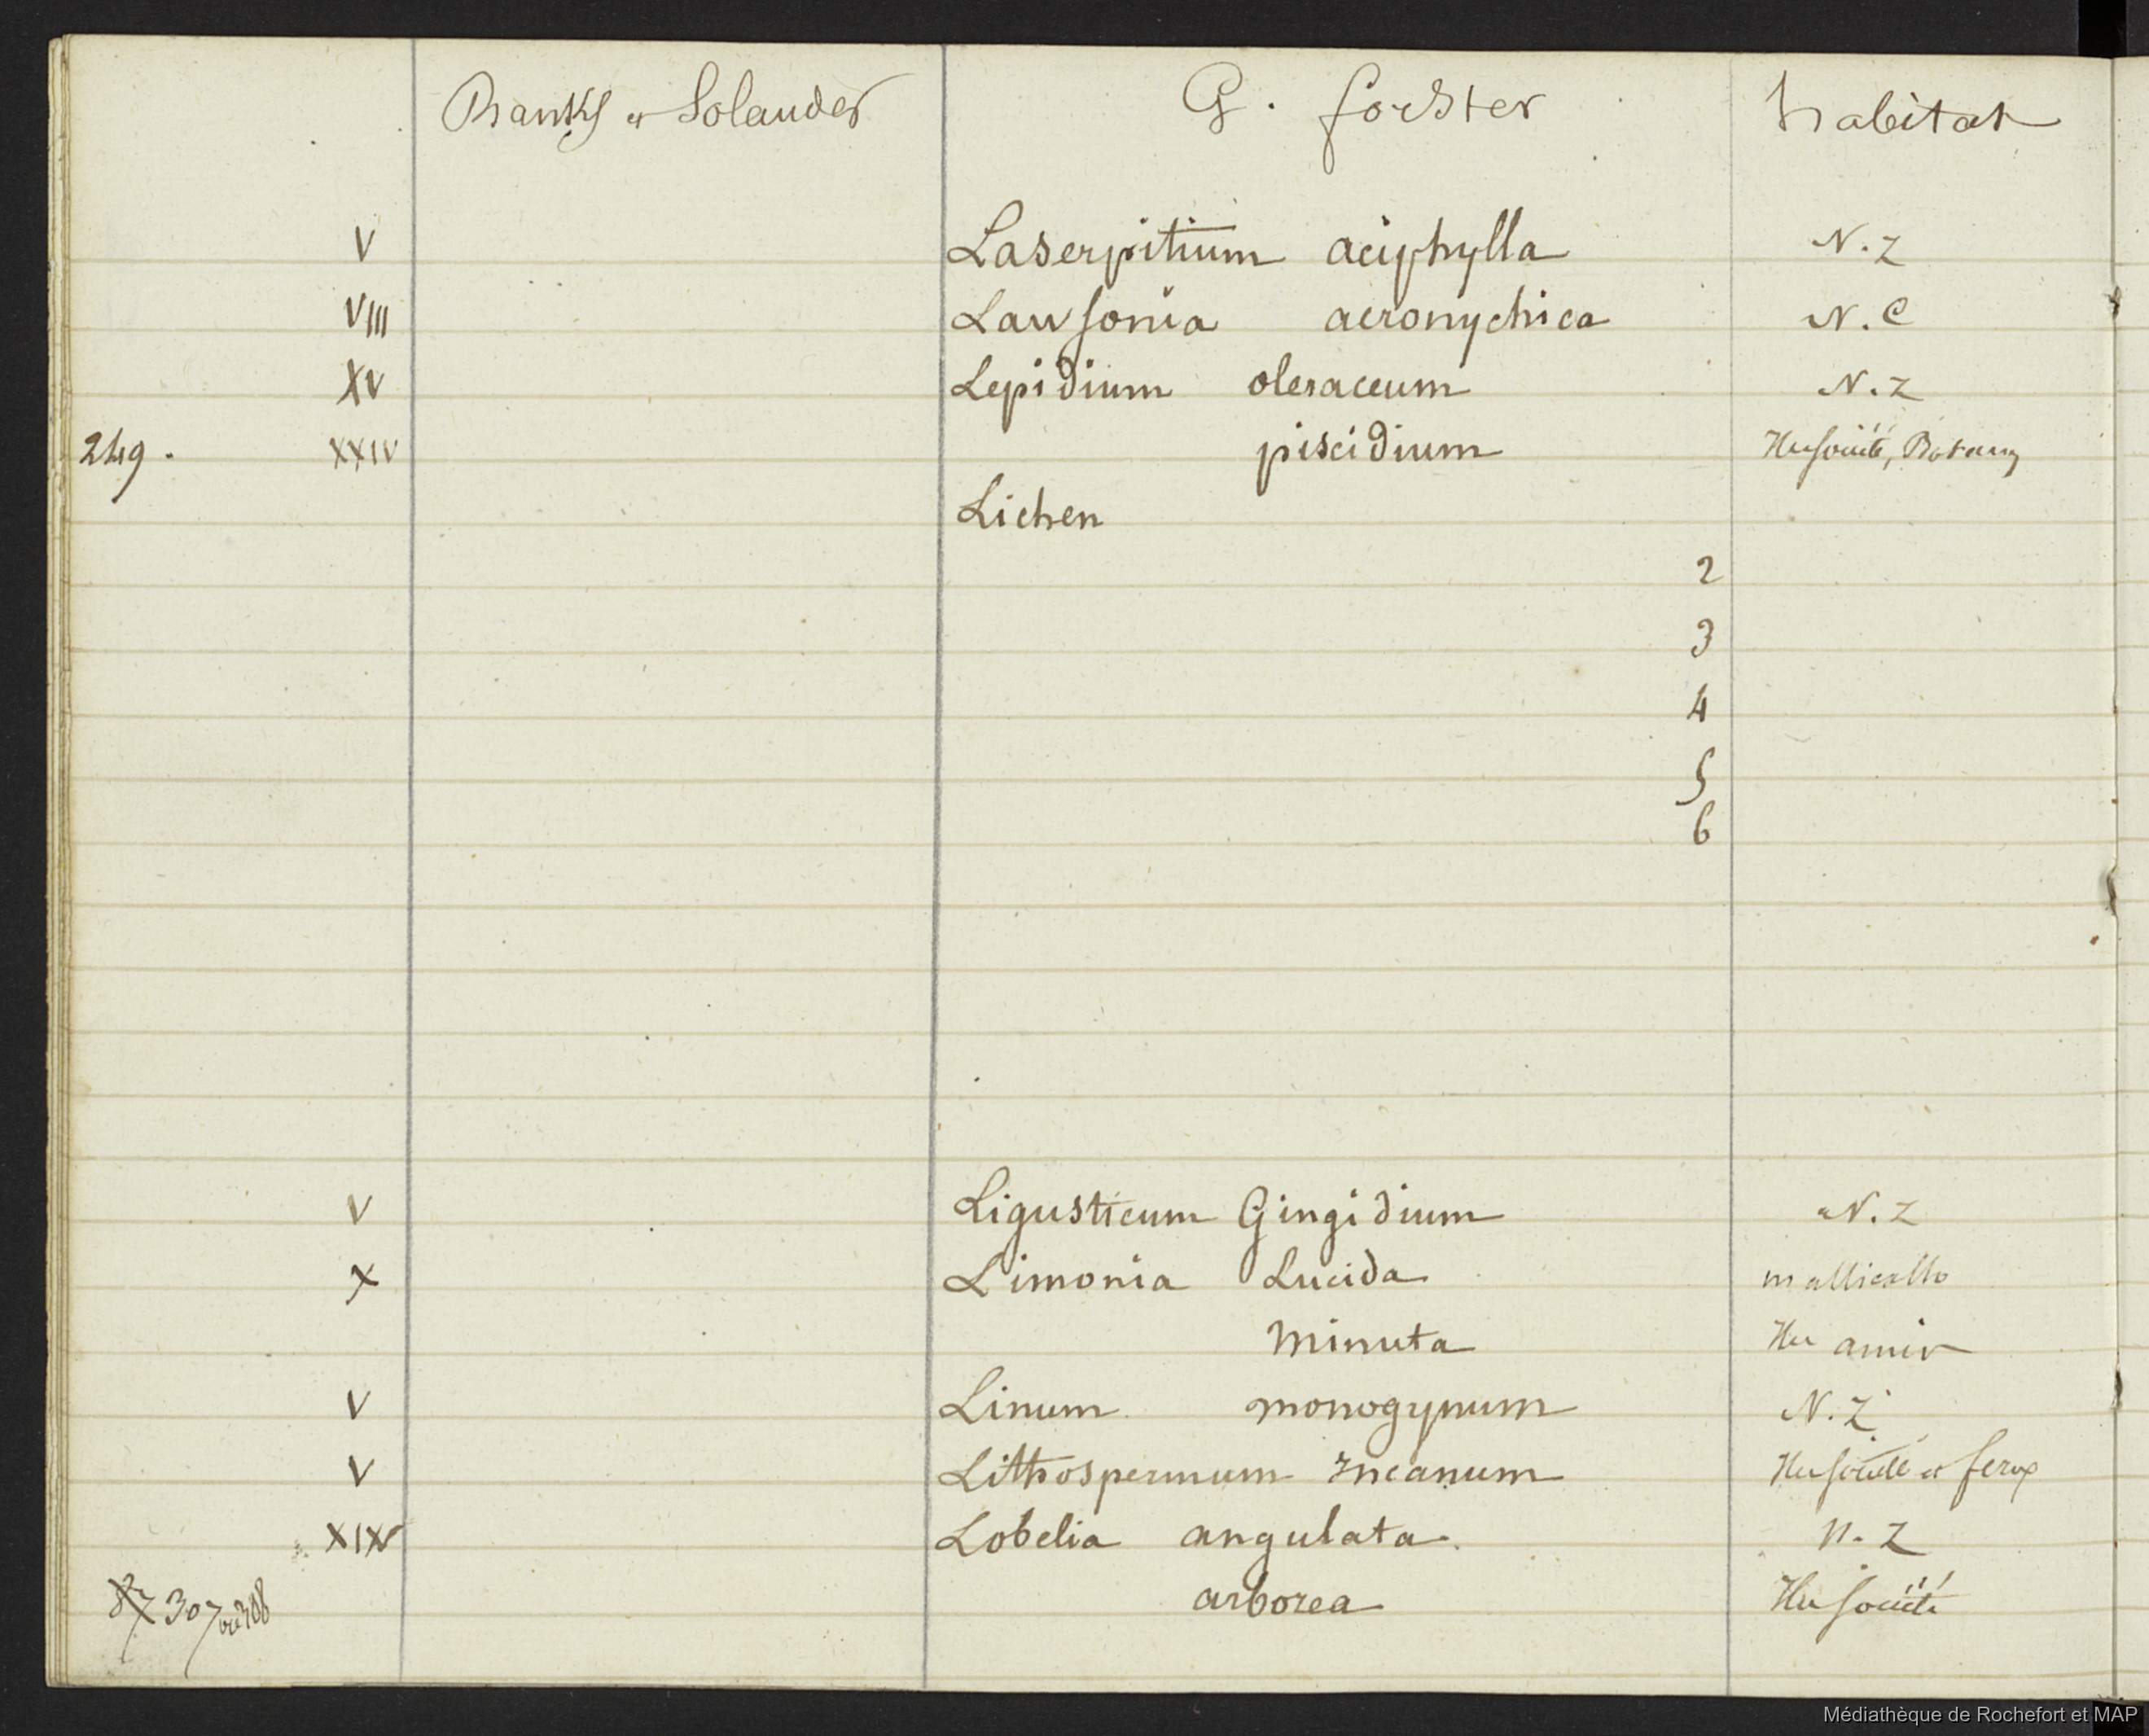 Banks et Solander G. forster habitat
V Laserpitium aciphylla N.Z
VIII Lawsonia acronychica N.C
XV Lepidium oleraceum N.Z
249. XXIV piscidium Ilesociété, Botany
Lichen
2
3
4
5
6
V Ligusticum Gingidium N.Z
X Limonia Lucida mallicollo
Minuta Ile amis
V Linum monogynum N.Z
V Lithospermum Incanum Ilesociété et
XIX Lobelia angulata. N.Z
307 ou 308 arborea Ile société
Médiathèque de Rochefort et MAP